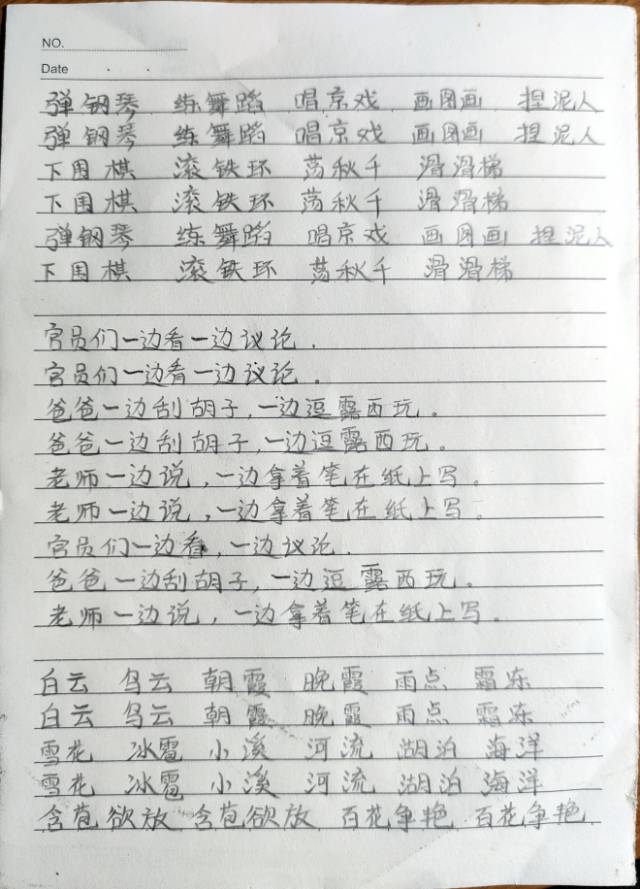 NO.
Date
弹钢琴 练舞蹈 唱京戏 画图画 捏泥人
弹钢琴 练舞蹈 唱京戏 画图画 捏泥人
下围棋 滚铁环 荡秋千 滑滑梯
下围棋 滚铁环 荡秋千 滑滑梯
弹钢琴 练舞蹈 唱京戏 画图画 捏泥人
下围棋 滚铁环 荡秋千 滑滑梯
官员们一边看一边议论.
官员们一边看一边议论.
爸爸一边刮胡子,一边逗露西玩。
爸爸一边刮胡子,一边逗露西玩。
老师一边说,一边拿着笔在纸上写。
老师一边说,一边拿着笔在纸上写。
官员们一边看,一边议论.
爸爸一边刮胡子,一边逗露西玩。
老师一边说,一边拿着笔在纸上写。
白云 乌云 朝霞 晚霞 雨点 霜冻
白云 乌云 朝霞 晚霞 雨点 霜冻
雪花 冰雹 小溪 河流 湖泊 海洋
雪花 冰雹 小溪 河流 湖泊 海洋
含苞欲放 含苞欲放 百花争艳 百花争艳